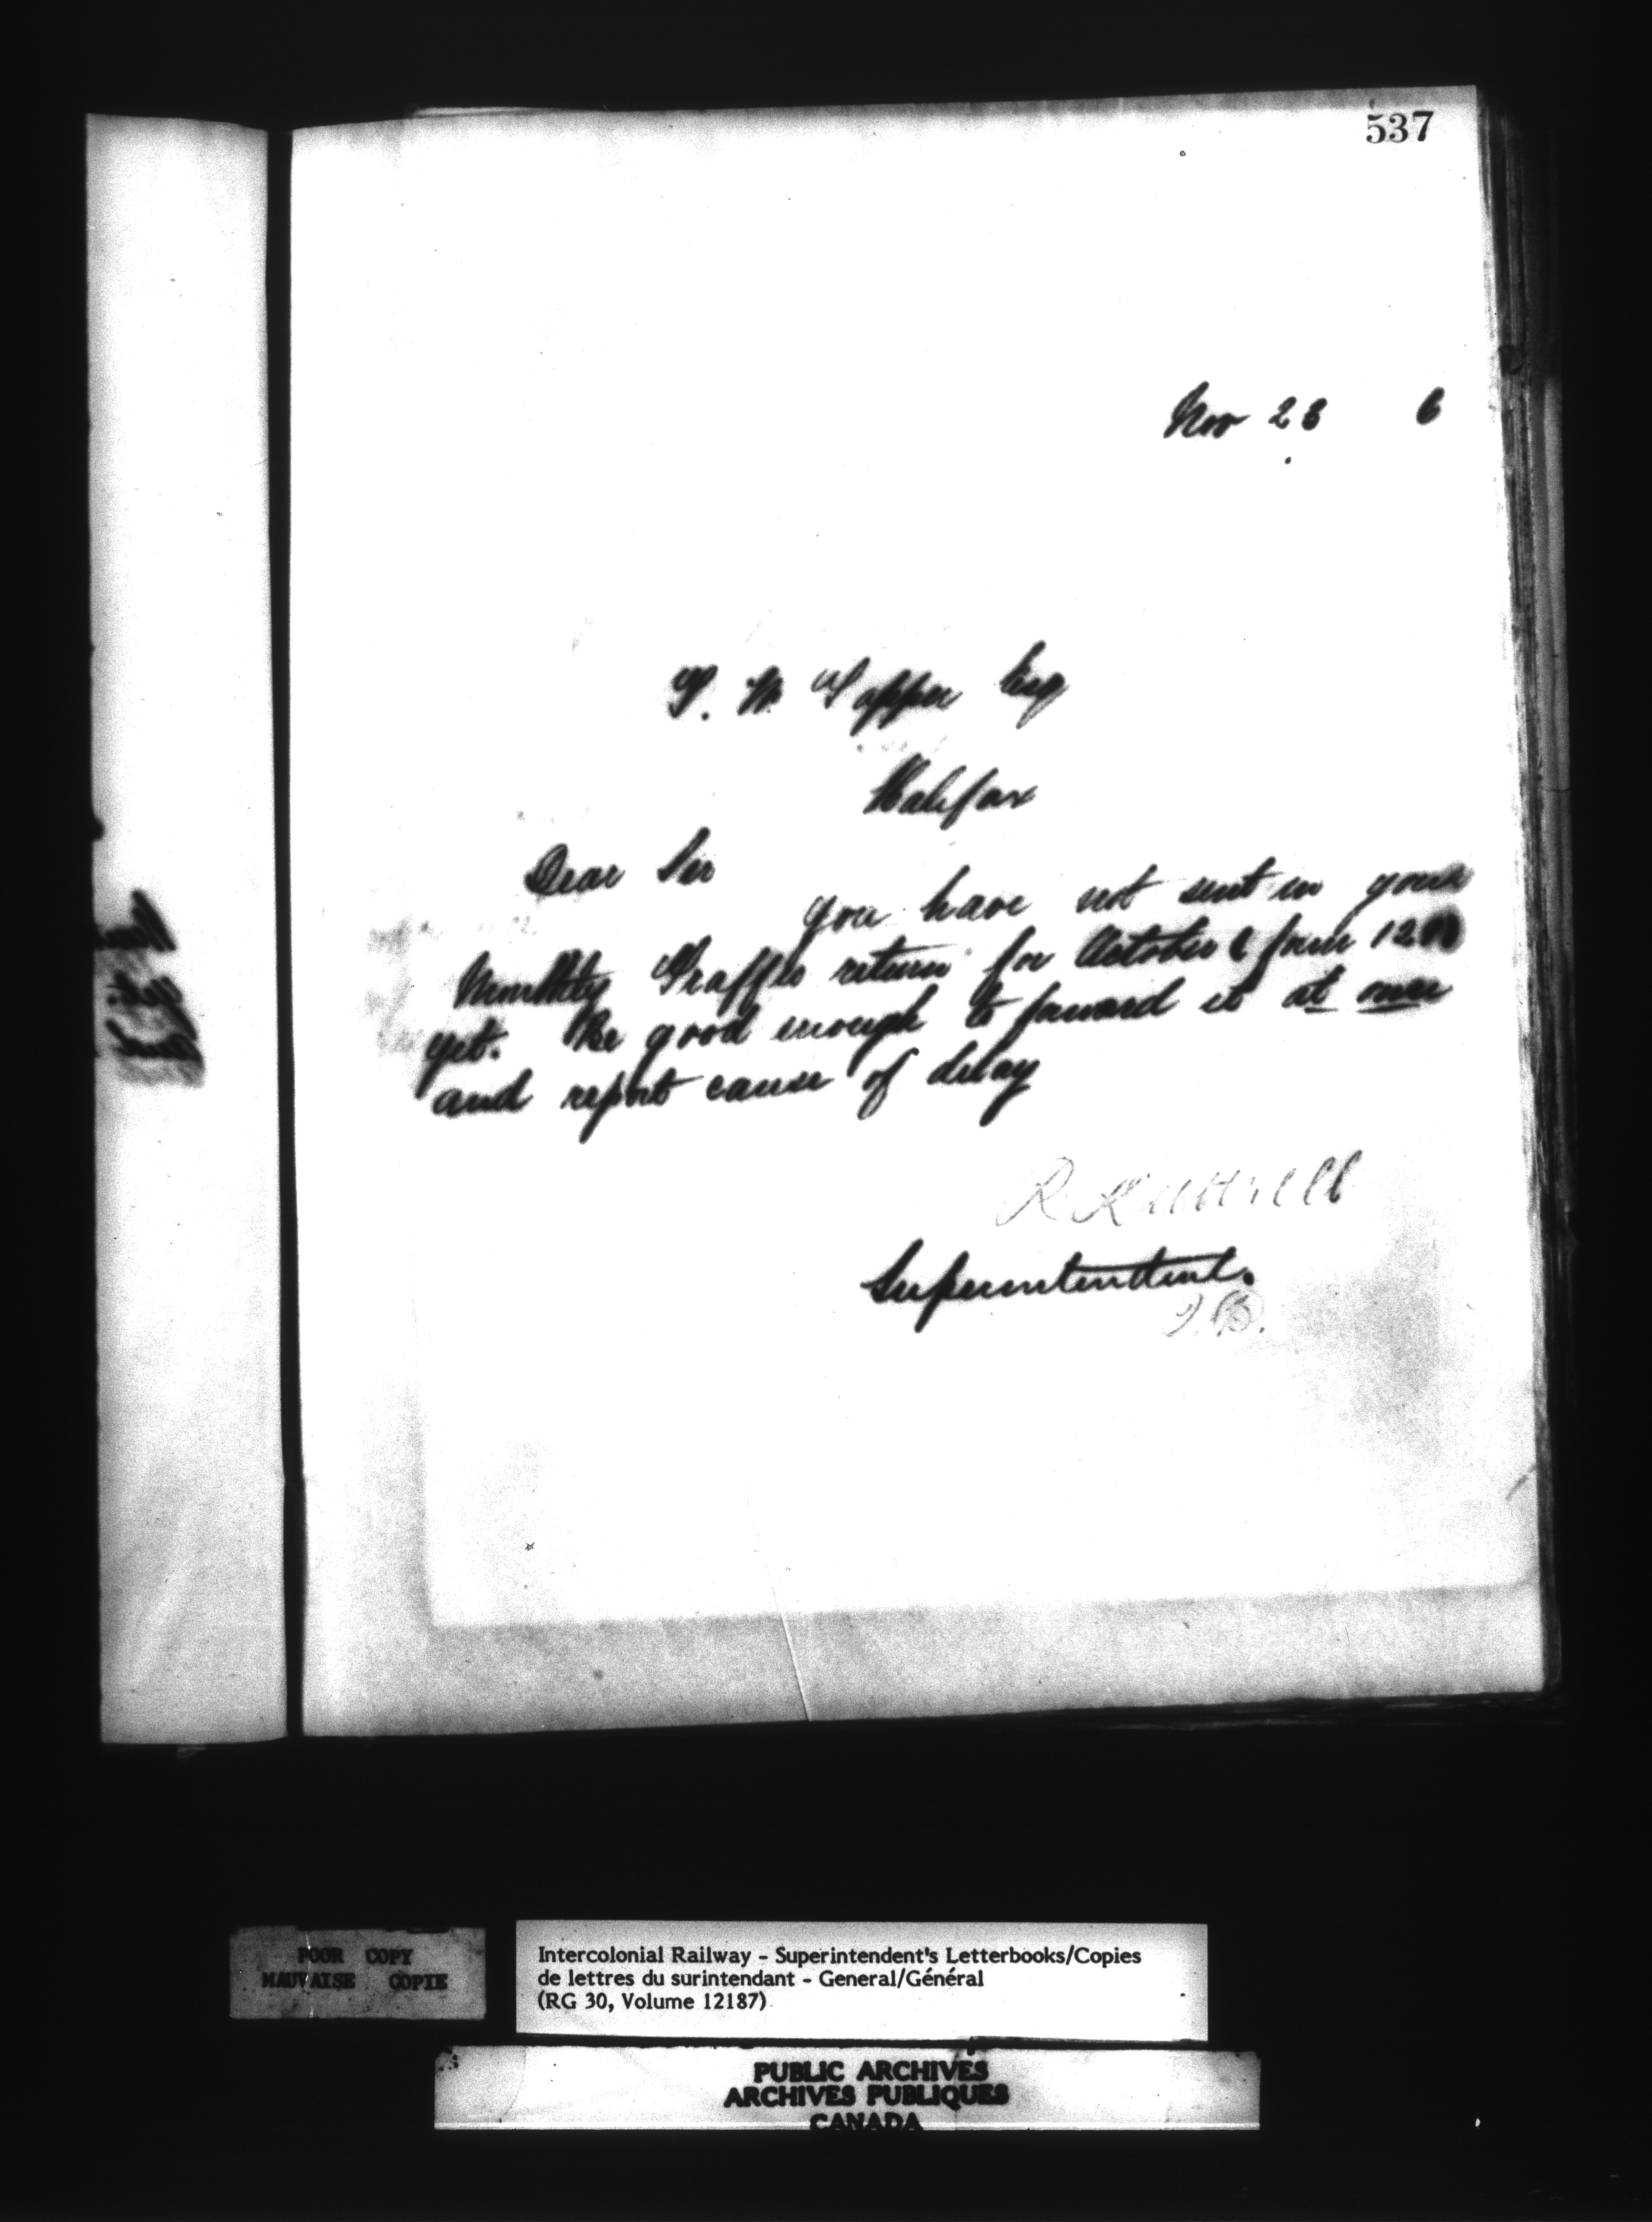 537
Nov 23 6
T. W. Tapper Esq
Halifax
Dear Sir
you have not sent in your
Monthly Traffic return for October & form 12
yet. Be good enough to forward it at once
and report cause of delay
R. Luttrell
Superintendent.
J.B.
POOR COPY
MAUVAISE COPIE
Intercolonial Railway - Superintendent's Letterbooks/Copies
de lettres du surintendant - General/Général
(RG 30, Volume 12187)
PUBLIC ARCHIVES
ARCHIVES PUBLIQUES
CANADA